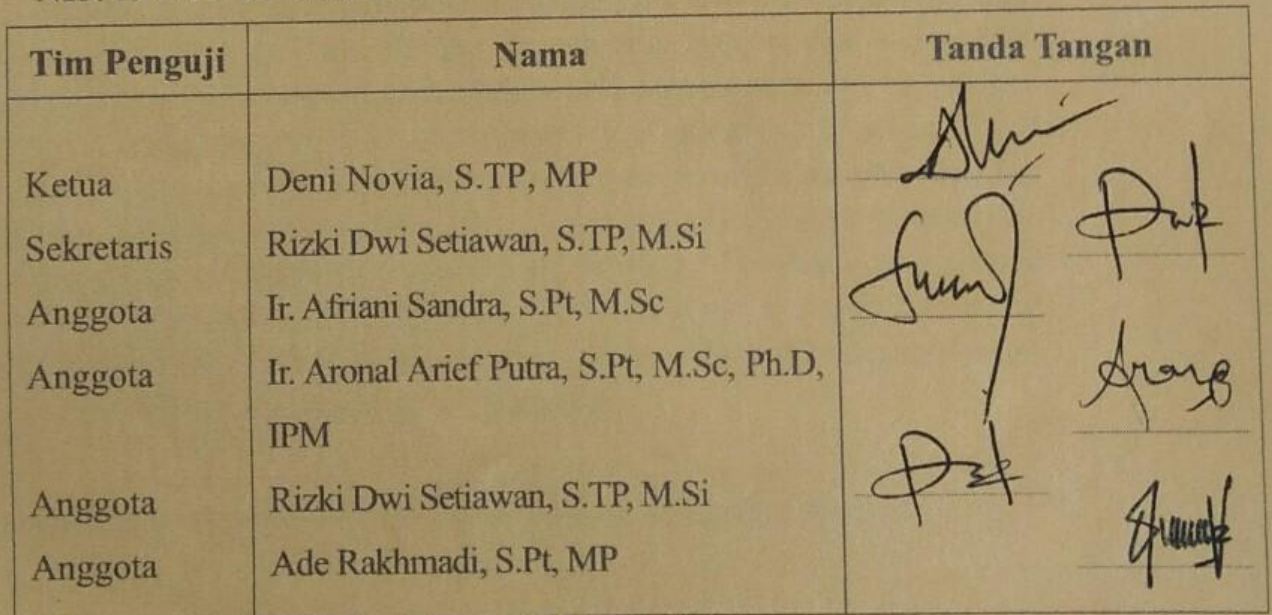 Tim Penguji Nama Tanda Tangan
Ketua Deni Novia, S.TP, MP
Sekretaris Rizki Dwi Setiawan, S.TP, M.Si
Anggota Ir. Afriani Sandra, S.Pt, M.Sc
Anggota Ir. Aronal Arief Putra, S.Pt, M.Sc, Ph.D,
IPM
Anggota Rizki Dwi Setiawan, S.TP, M.Si
Anggota Ade Rakhmadi, S.Pt, MP